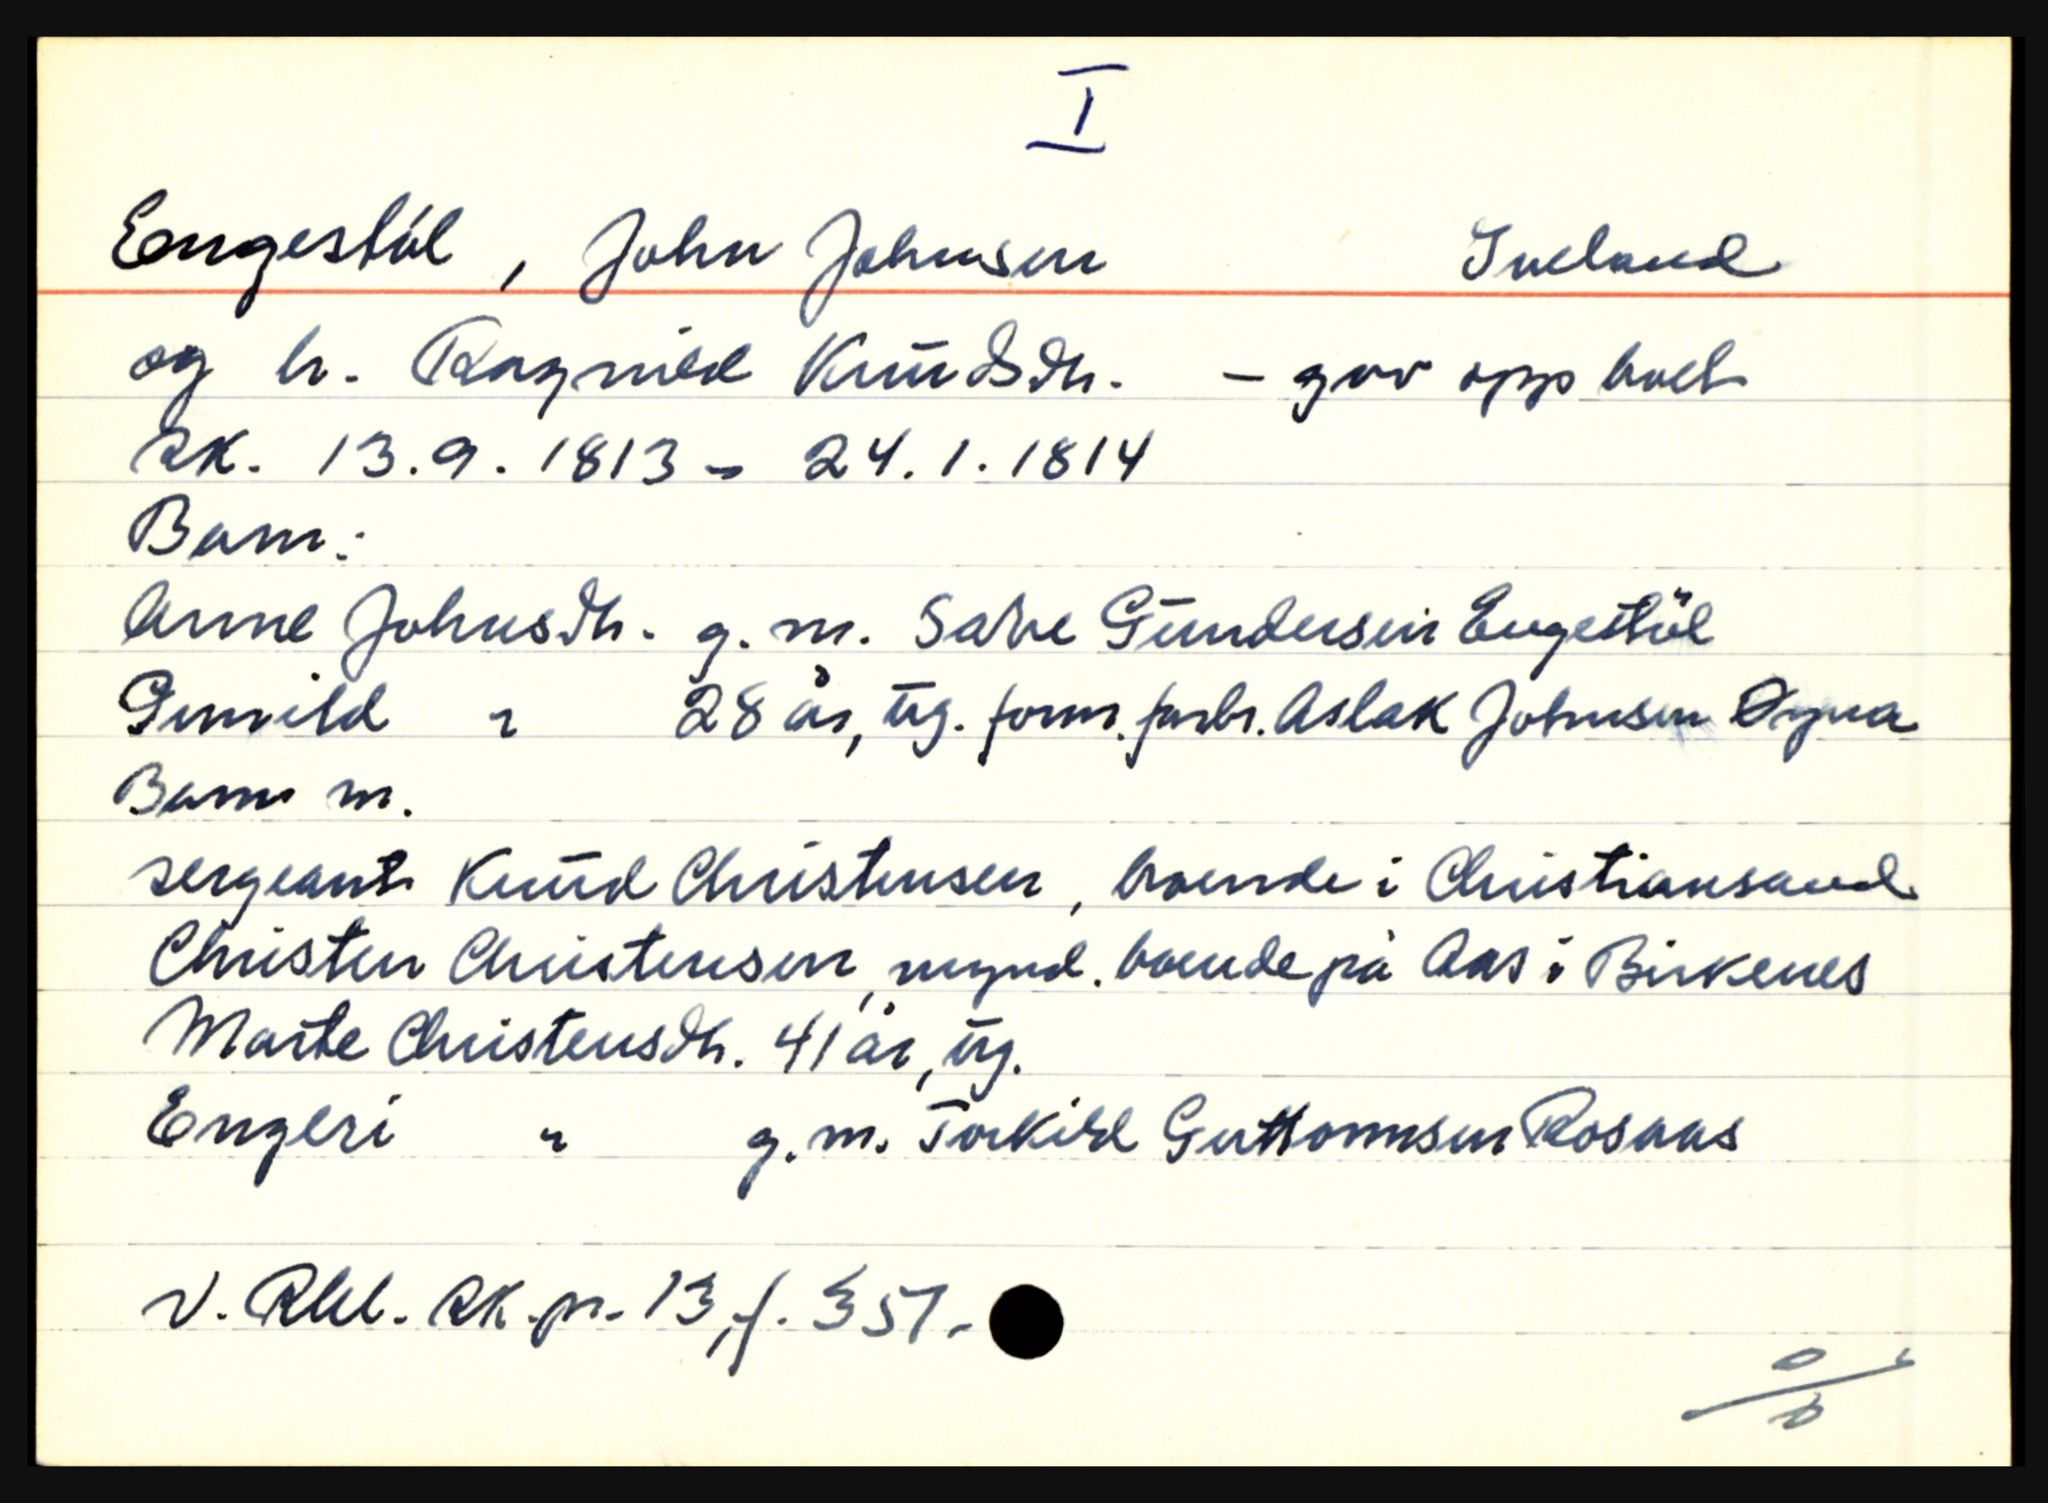 I
Engestöl, John Johnsen Iveland
og h. Ragnild Knudsdtr. - gav opp boet
RK. 13.9.1813 - 24.1.1814
Barn:
Anne Johnsdtr. g.m. Salve Gundersen Engestöl
Gunild " 28 år, ug. form. farbr. Aslak Johnsen Øgna
Barn m.
sergeant Knud Christensen, boende i Christiansand
Christen Christensen, mynd. boende på Aas i Birkenes
Marte Christensdtr. 41 år, ug.
Engeri " g.m. Torkild Guttormsen Rosaas
V. Rbl. RK.pr. 13, f. 351.